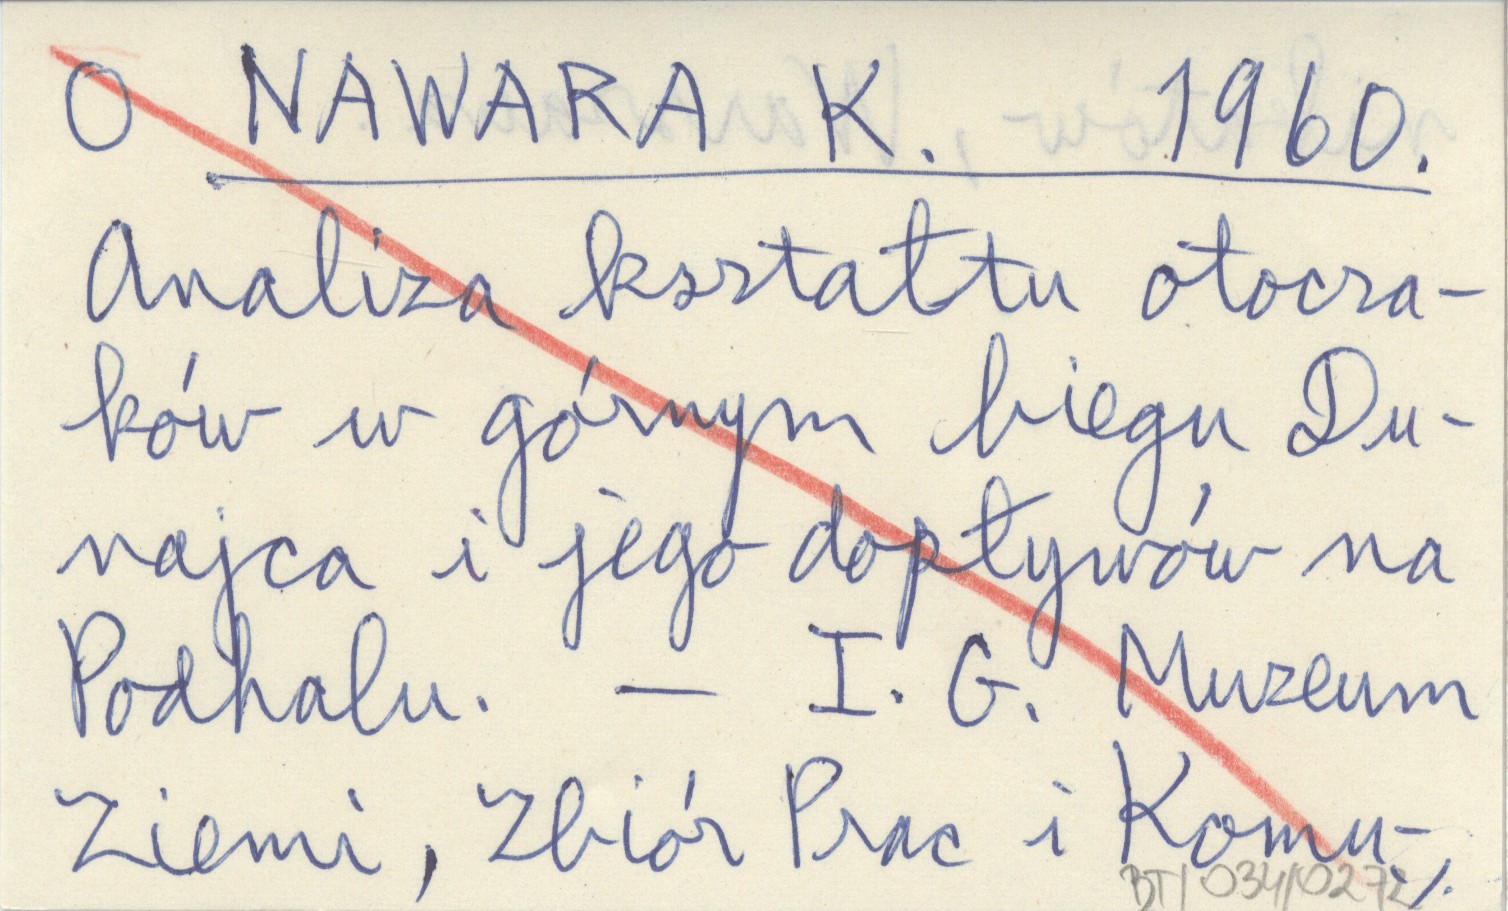 O NAWARA K. 1960.
Analiza kształtu otocza-
ków w górnym biegu Du-
najca i jego dopływów na
Podhalu. — I. G. Muzeum
Ziemi, Zbiór Prac i Komu-
./.
BT/034/0272